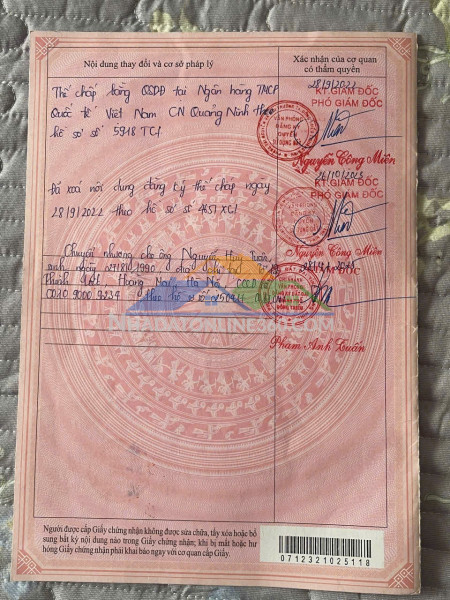 Nội dung thay đổi và cơ sở pháp lý
Xác nhận của cơ quan
có thẩm quyền
Thế chấp bằng QSDĐ tại Ngân hàng TMCP
Quốc tế Việt Nam CN Quảng Ninh theo
hồ sơ số 5918 TC1
28/9/2022
KT.GIÁM ĐỐC
PHÓ GIÁM ĐỐC
VĂN PHÒNG
ĐĂNG KÝ
QUYỀN
Nguyễn Công Miên
Đã xoá nội dung đăng ký thế chấp ngày
28/9/2022 theo hồ sơ số 4657 XC1
KT.GIÁM ĐỐC
PHÓ GIÁM ĐỐC
Nguyễn Công Miên
Chuyển nhượng cho ông Nguyễn Hữu
sinh ngày 1990 địa chỉ
Hoàng Mai, Hà Nội, CCCD số
theo hồ sơ số
GIÁM ĐỐC
CHI NHÁNH
VĂN PHÒNG
NHADATONLINE360.COM
Phạm Anh Tuấn
Người được cấp Giấy chứng nhận không được sửa chữa, tẩy xóa hoặc bổ
sung bất kỳ nội dung nào trong Giấy chứng nhận; khi bị mất hoặc hư
hỏng Giấy chứng nhận phải khai báo ngay với cơ quan cấp Giấy.
0712321025118